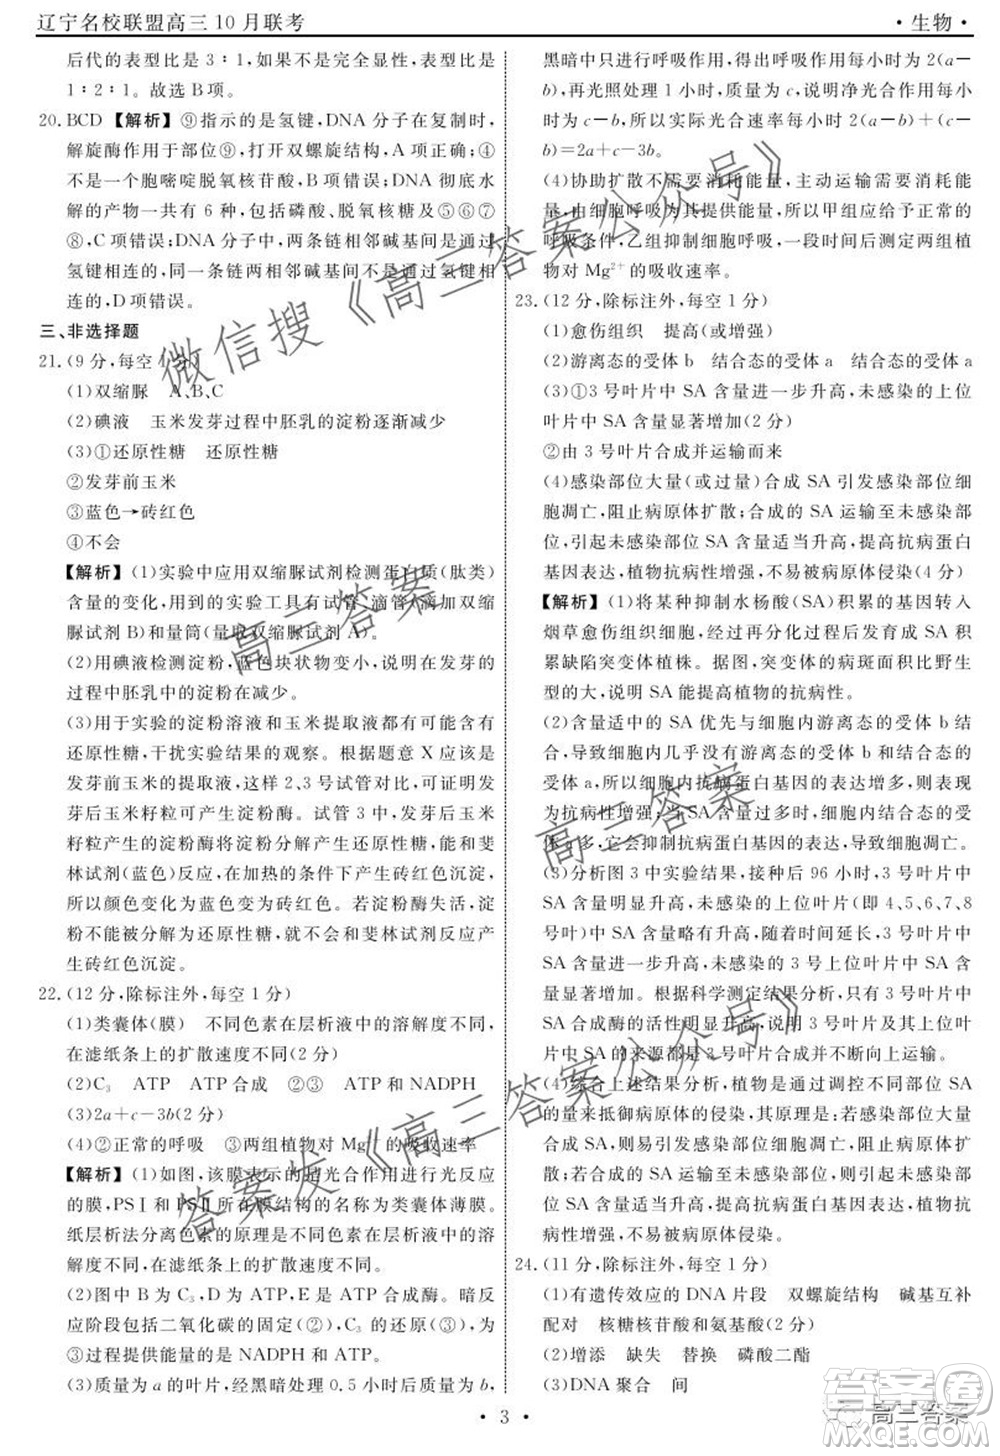 辽宁名校联盟高三10月联考
·生物·
后代的表型比是3∶1,如果不是完全显性,表型比是
1∶2∶1。故选B项。
20. BCD 【解析】⑨指示的是氢键,DNA分子在复制时,
解旋酶作用于部位⑨,打开双螺旋结构,A项正确;④
不是一个胞嘧啶脱氧核苷酸,B项错误;DNA彻底水
解的产物一共有6种,包括磷酸、脱氧核糖及⑤⑥⑦
⑧,C项错误;DNA分子中,两条链相邻碱基间是通过
氢键相连的,同一条链两相邻碱基间不是通过氢键相
连的,D项错误。
三、非选择题
21. (9分,每空1分)
(1)双缩脲 A、B、C
(2)碘液 玉米发芽过程中胚乳的淀粉逐渐减少
(3)①还原性糖 还原性糖
②发芽前玉米
③蓝色→砖红色
④不会
【解析】(1)实验中应用双缩脲试剂检测蛋白质(肽类)
含量的变化,用到的实验工具有试管、滴管(滴加双缩
脲试剂B)和量筒(量取双缩脲试剂A)。
(2)用碘液检测淀粉,蓝色块状物变小,说明在发芽的
过程中胚乳中的淀粉在减少。
(3)用于实验的淀粉溶液和玉米提取液都有可能含有
还原性糖,干扰实验结果的观察。根据题意X应该是
发芽前玉米的提取液,这样2、3号试管对比,可证明
发芽后玉米籽粒可产生淀粉酶。试管3中,发芽玉米
籽粒产生的淀粉酶将淀粉分解产生还原性糖,能和斐
林试剂(蓝色)反应,在加热的条件下产生砖红色沉淀,
所以颜色变化为蓝色变为砖红色。若淀粉酶失活,淀
粉就不会被分解为还原性糖,就不会和斐林试剂反应产
生砖红色沉淀。
22. (12分,除标注外,每空1分)
(1)类囊体(膜) 不同色素在层析液中的溶解度不同,
在滤纸条上的扩散速度不同(2分)
(2)C₃ ATP ATP合成 ②③ ATP和NADPH
(3)2a+c-3b(2分)
(4)②正常的呼吸 ③两组植物对Mg²⁺的吸收速率
【解析】(1)如图,该膜表示的是光合作用进行光反应
的膜,PSⅠ和PSⅡ所在膜结构的名称是类囊体(膜)。
纸层析法分离色素的原理是不同色素在层析液中的溶
解度不同,在滤纸条上的扩散速度不同。
(2)图中B为C₃,D为ATP,E为ATP合成酶。暗反
应阶段包括二氧化碳的固定(②)、C₃的还原(③),为该
过程提供能量的是NADPH和ATP。
(3)质量为a的叶片,经黑暗处理0.5小时后质量为b,
黑暗中只进行呼吸作用,所以每小时呼吸为2(a-b);
再光照处理1小时,质量为c,说明净光合作用每小时
为c-b,所以实际光合速率每小时为c-b+2(a-
b)=2a+c-3b。
(4)协助扩散不需要消耗能量,主动运输需要消耗能
量,由细胞呼吸为其提供能量,所以甲组应给予正常的
呼吸条件,乙组抑制细胞呼吸,一段时间后测定两组植
物对Mg²⁺的吸收速率。
23. (12分,除标注外,每空1分)
(1)愈伤组织 提高(或增强)
(2)游离态的受体b 结合态的受体a 结合态的受体a
(3)①3号叶片中SA含量进一步升高,未感染的上位
叶片中SA含量显著增加(2分)
②由3号叶片合成并运输而来
(4)感染部位大量(或过量)合成SA引发感染部位细
胞凋亡,阻止病原体扩散;合成的SA运输至未感染部
位,引起未感染部位SA适量升高,提高抗病蛋白
基因表达,植物抗病性增强,不易被病原体侵染(4分)
【解析】(1)将某种抑制水杨酸(SA)积累的基因转入
烟草愈伤组织细胞,经过再分化过程发育成SA积
累缺陷突变体植株。据图,突变体的病斑面积比野生
型的大,说明SA能提高植物的抗病性。
(2)含量适中的SA优先与细胞内游离态的受体b结
合,导致细胞内几乎没有游离态的受体b和结合态的
受体a,所以细胞内抗病蛋白基因的表达增强,表现为
抗病性增强;当SA含量较高时,细胞内结合态的受
体a多,它会抑制抗病蛋白基因的表达。
(3)分析图3中实验结果,接种后96小时,3号叶片中
SA含量明显升高,未感染的上位叶片(即4、5、6、7、8
号叶)中SA含量略有升高。随着时间延长,3号叶片
SA含量进一步升高,未感染的上位叶片中SA含量显
著增加。根据科学测定结果分析,只有3号叶片中
SA合成酶的活性明显升高,说明3号叶片和其他叶片
SA的来源都是3号叶片合成并不断向上运输。
(4)综合以上结果分析,植物通过精准调控不同部位SA
的量来抵御病原体的侵染,其中的机理是:若感染病原
体后,植物感染部位大量合成SA,使其SA含量大幅
度升高,引发感染部位细胞凋亡,从而阻止病原体的扩
散;合成的SA运输至未感染部位,引起未感染部位
SA适量升高,提高抗病蛋白基因表达,从而使植物抗
病性增强,不易被病原体侵染。
24. (11分,除标注外,每空1分)
(1)有遗传效应的DNA片段 双螺旋结构 碱基互补
配对 核糖核苷酸和氨基酸(2分)
(2)增添 缺失 替换 磷酸二酯
(3)DNA聚合 间
· 3 ·
微信搜《高三答案公众号》
高三答案
高三答案
答案发《高三答案公众号》
答案圈
高三答案
MXQE.COM